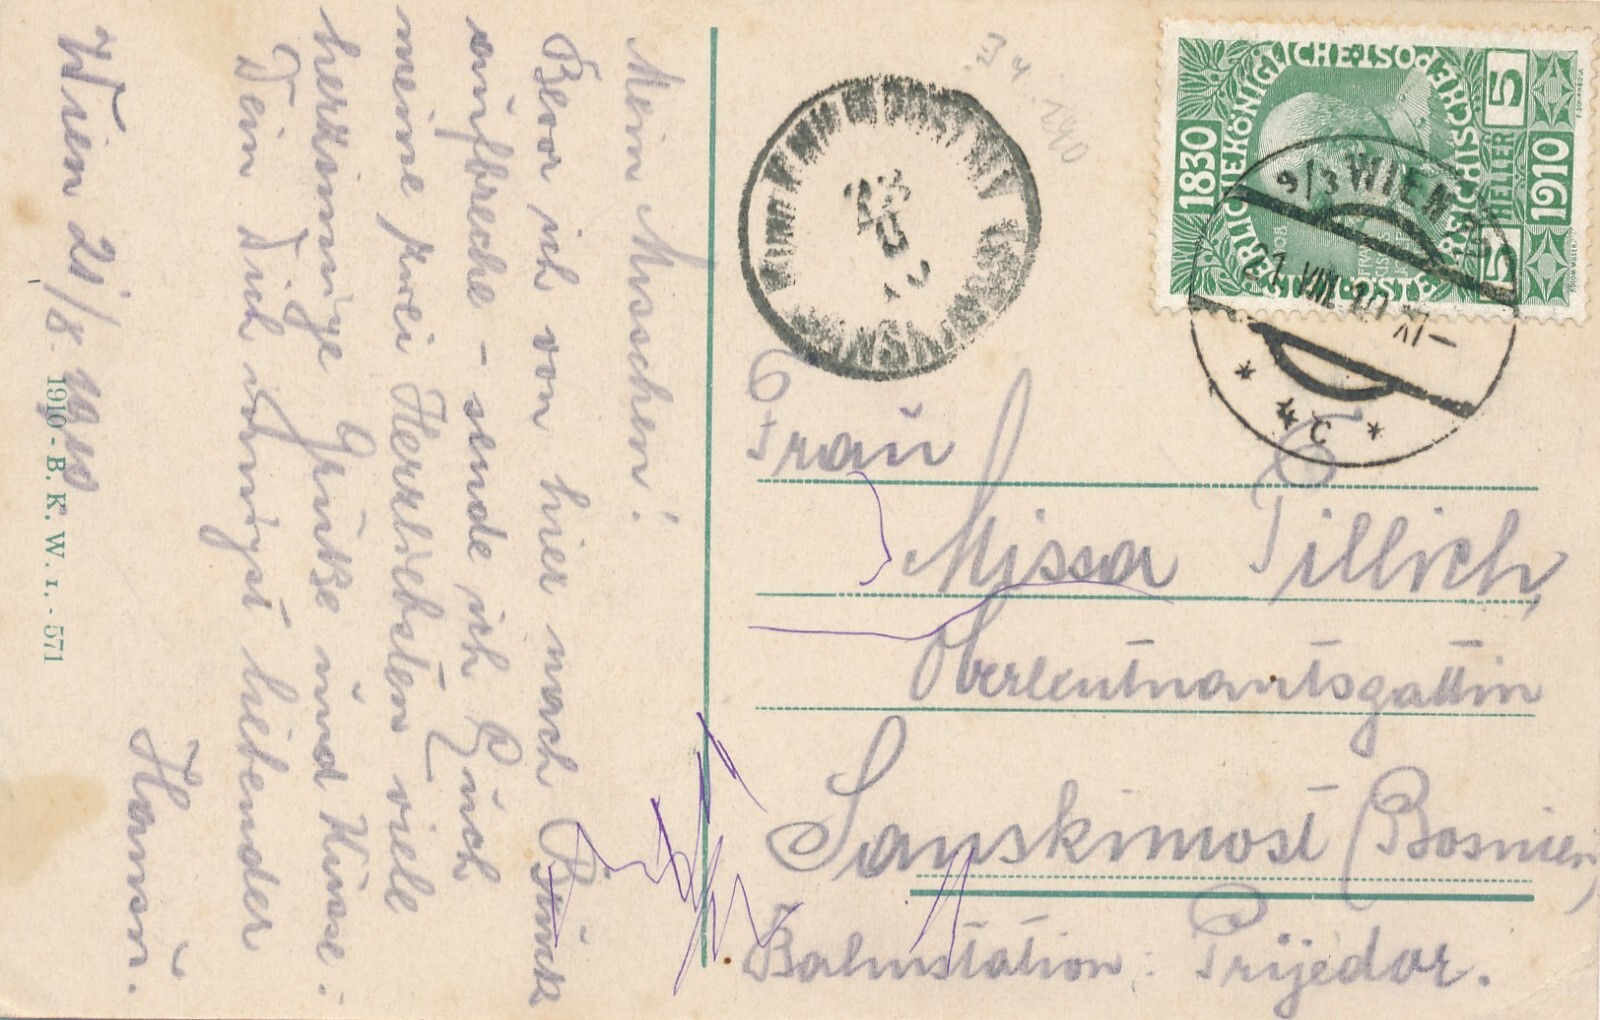 Mein Musschen!
Bevor ich von hier nach Bruck
aufbreche - sende ich Euch
meine zwei Herzliebsten viele
herzinnige Grüsse und Küsse:
Dein Dich innigst liebender
Hansi.
Wien 21/8. 1910
1910 - B. K. W. I. - 571
KAISERLICHE KÖNIGLICHE ÖSTERREICHISCHE POST
1830
1910
5
HELLER
5
1908
9/3 WIEN
21 VIII 10 XI-
* C *
Frau
Missa Tillich,
Oberleutnantsgattin
Sanskimost (Bosnien)
Bahnstation: Prijedor.